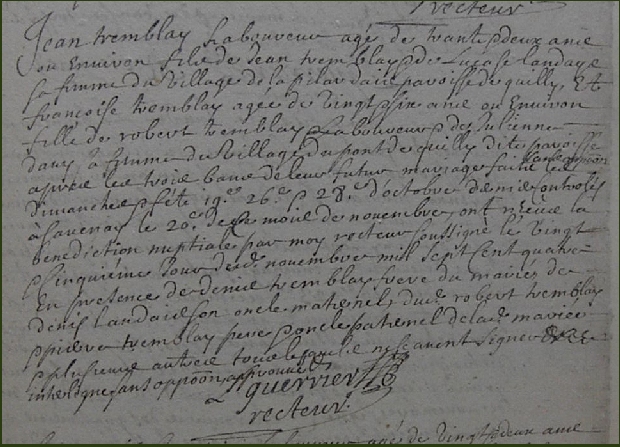 recteur
Jean tremblay Laboureur agé de trante & deux ans
ou Environ fils de Jean tremblay & de Lucase landays
sa femme du village de la pilardaire paroisse de quilly, Et
françoise tremblay agée de vingt & six ans ou Environ
fille de robert tremblay Laboureur & de Julienne
dauy sa femme du village du pont de quilly dite paroisse
apres les trois bans de leur futur mariage faits les
dimanches & fête 19e 26e & 28e d'octobre dernier controlés
à savenay le 20e de ce mois de novembre, ont reçeue la
benediction nuptiale par moy recteur soussigné le vingt
& cinquième jour dud. novembre mil sept cent quatre
En presence de denis tremblay frere du marié de
denis landais son oncle maternel, dud. robert tremblay
& pierre tremblay pere & oncle paternel de lad. mariée
& plusieurs autres tous lesquels ne scavent signer
interligne sans oppõon approuvé
guerrier
recteur.
agés de vingt & deux ans